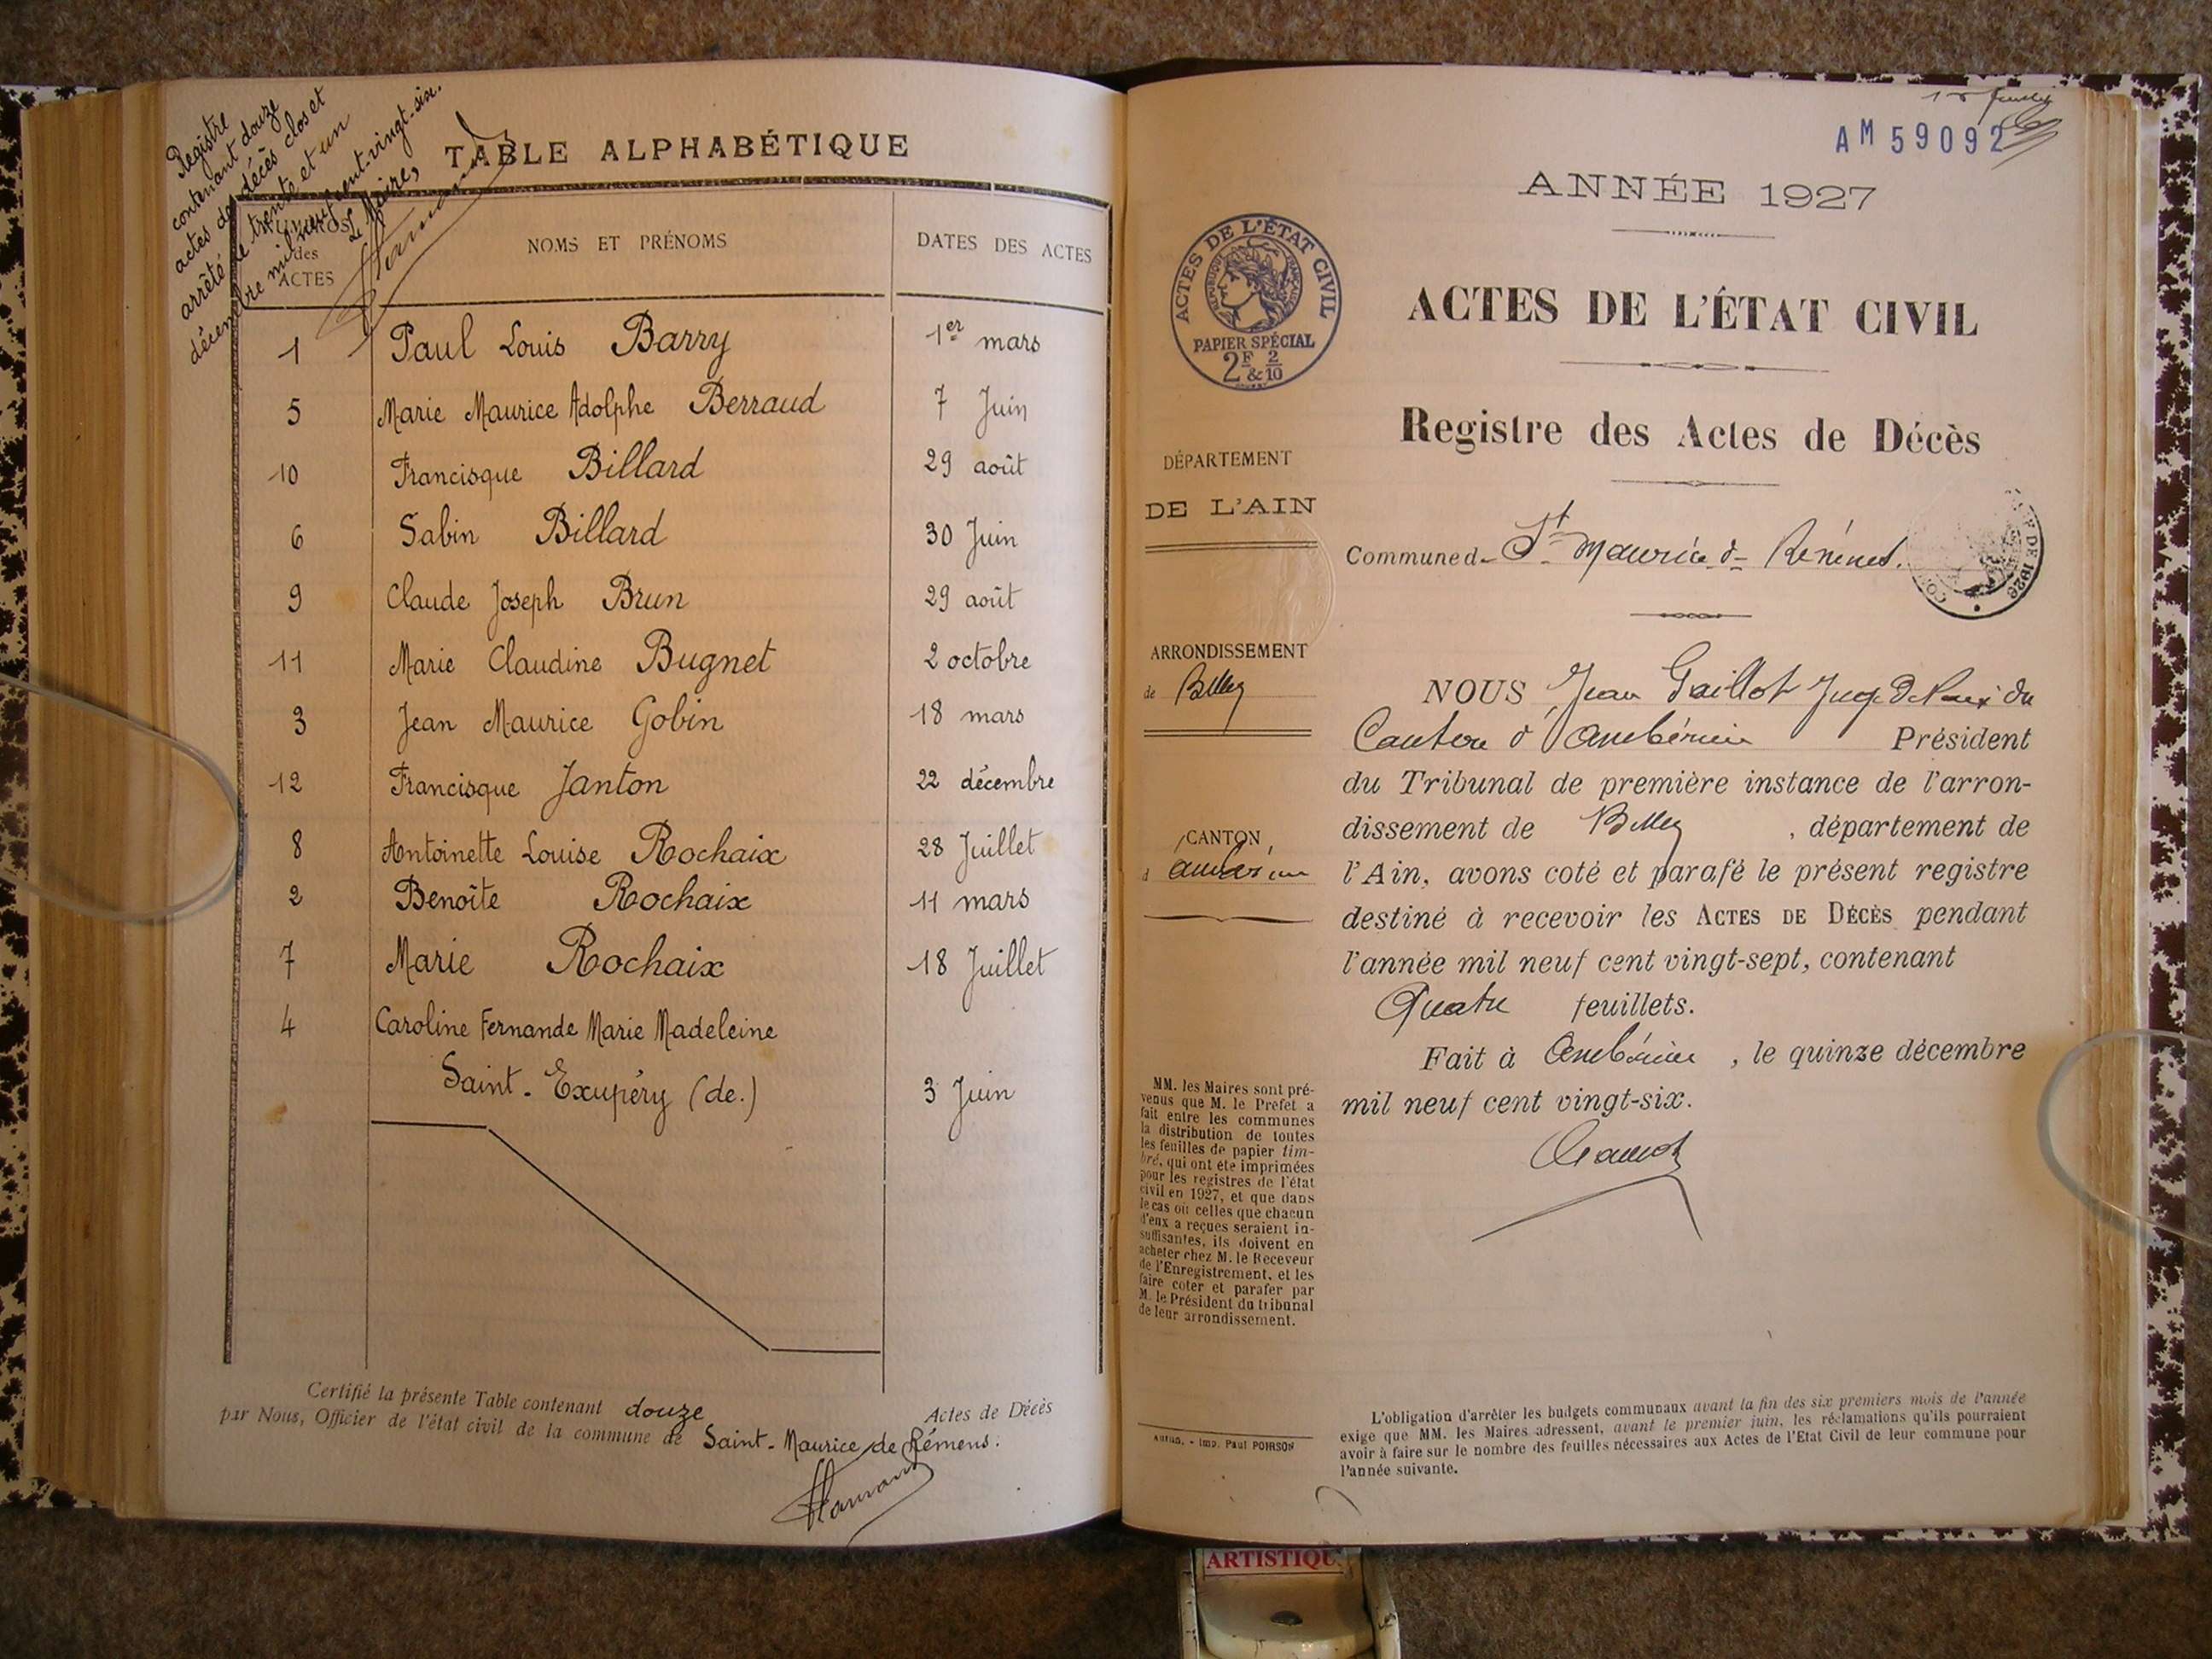 Registre
contenant douze
actes de décès clos et
arrêté le trente et un
décembre mil neuf cent-vingt-six.
Le Maire,
TABLE ALPHABÉTIQUE
NUMÉROS
des
ACTES
NOMS ET PRÉNOMS
DATES DES ACTES
1 Paul Louis Barry 1er mars
5 Marie Maurice Adolphe Berraud 7 Juin
10 Francisque Billard 29 août
6 Sabin Billard 30 Juin
9 Claude Joseph Brun 29 août
11 Marie Claudine Bugnet 2 octobre
3 Jean Maurice Gobin 18 mars
12 Francisque Janton 22 décembre
8 Antoinette Louise Rochaix 28 Juillet
2 Benoîte Rochaix 11 mars
7 Marie Rochaix 18 Juillet
4 Caroline Fernande Marie Madeleine
Saint-Exupéry (de.) 3 Juin
Certifié la présente Table contenant douze Actes de Décès
par Nous, Officier de l'état civil de la commune de Saint-Maurice de Rémens.
AM 59092
ANNÉE 1927
ACTES DE L'ÉTAT CIVIL
RÉPUBLIQUE FRANÇAISE
PAPIER SPÉCIAL
2F & 2/10
ACTES DE L'ÉTAT CIVIL
Registre des Actes de Décès
DÉPARTEMENT
DE L'AIN
Commune d St Maurice de Rémens.
DE 1926
ARRONDISSEMENT
de Belley
CANTON
d'Ambérieu
NOUS Jean Gaillot Juge de Paix du
Canton d'Ambérieu Président
du Tribunal de première instance de l'arron-
dissement de Belley, département de
l'Ain, avons coté et parafé le présent registre
destiné à recevoir les ACTES DE DÉCÈS pendant
l'année mil neuf cent vingt-sept, contenant
Quatre feuillets.
Fait à Ambérieu, le quinze décembre
mil neuf cent vingt-six.
MM. les Maires sont pré-
venus que M. le Préfet a
fait entre les communes
la distribution de toutes
les feuilles de papier tim-
bré, qui ont été imprimées
pour les registres de l'état
civil en 1927, et que dans
le cas où celles que chacun
d'eux a reçues seraient in-
suffisantes, ils doivent en
acheter chez M. le Receveur
de l'Enregistrement, et les
faire coter et parafer par
M. le Président du tribunal
de leur arrondissement.
Autun. - Imp. Paul POIRSON
L'obligation d'arrêter les budgets communaux avant la fin des six premiers mois de l'année
exige que MM. les Maires adressent, avant le premier juin, les réclamations qu'ils pourraient
avoir à faire sur le nombre des feuilles nécessaires aux Actes de l'Etat Civil de leur commune pour
l'année suivante.
ARTISTIQU